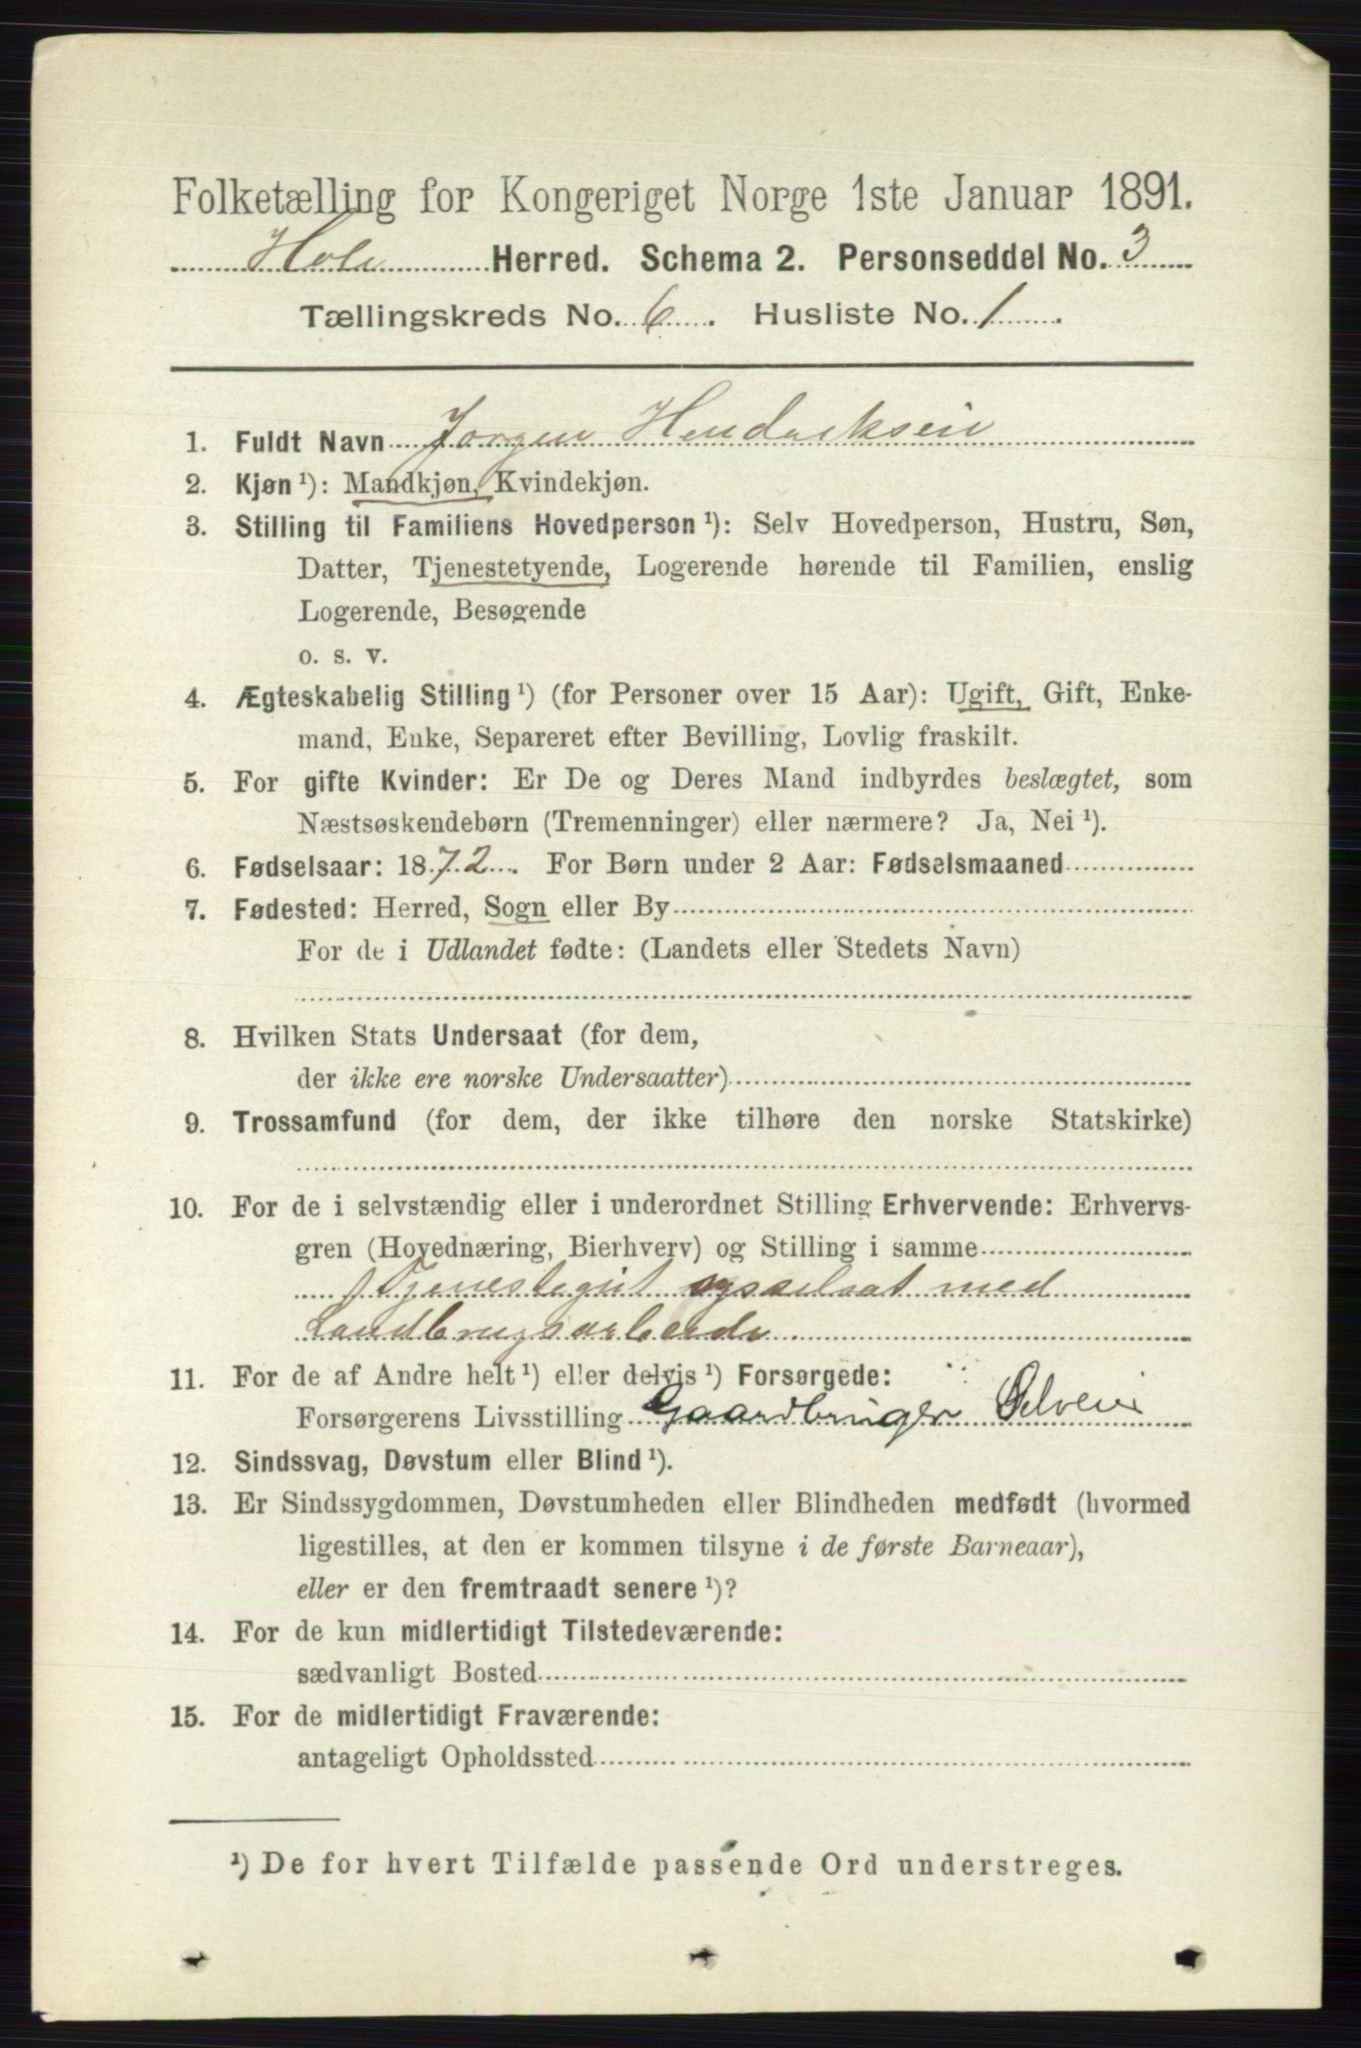 Folketælling for Kongeriget Norge 1ste Januar 1891.
Hole Herred. Schema 2. Personseddel No. 3
Tællingskreds No. 6. Husliste No. 1.
1. Fuldt Navn Jorgen Hendriksen
2. Kjøn ¹): Mandkjøn, Kvindekjøn.
3. Stilling til Familiens Hovedperson ¹): Selv Hovedperson, Hustru, Søn,
Datter, Tjenestetyende, Logerende hørende til Familien, enslig
Logerende, Besøgende
o. s. v.
4. Ægteskabelig Stilling ¹) (for Personer over 15 Aar): Ugift, Gift, Enke-
mand, Enke, Separeret efter Bevilling, Lovlig fraskilt.
5. For gifte Kvinder: Er De og Deres Mand indbyrdes beslægtet, som
Næstsøskendebørn (Tremenninger) eller nærmere? Ja, Nei ¹).
6. Fødselsaar: 1872. For Børn under 2 Aar: Fødselsmaaned
7. Fødested: Herred, Sogn eller By
For de i Udlandet fødte: (Landets eller Stedets Navn)
8. Hvilken Stats Undersaat (for dem,
der ikke ere norske Undersaatter)
9. Trossamfund (for dem, der ikke tilhøre den norske Statskirke)
10. For de i selvstændig eller i underordnet Stilling Erhvervende: Erhvervs-
gren (Hovednæring, Bierhverv) og Stilling i samme
Tjenestegut sysselsat med
Landbrugsarbeide
11. For de af Andre helt ¹) eller delvis ¹) Forsørgede:
Forsørgerens Livsstilling Gaardbruger
12. Sindssvag, Døvstum eller Blind ¹).
13. Er Sindssygdommen, Døvstumheden eller Blindheden medfødt (hvormed
ligestilles, at den er kommen tilsyne i de første Barneaar),
eller er den fremtraadt senere ¹)?
14. For de kun midlertidigt Tilstedeværende:
sædvanligt Bosted
15. For de midlertidigt Fraværende:
antageligt Opholdssted
¹) De for hvert Tilfælde passende Ord understreges.